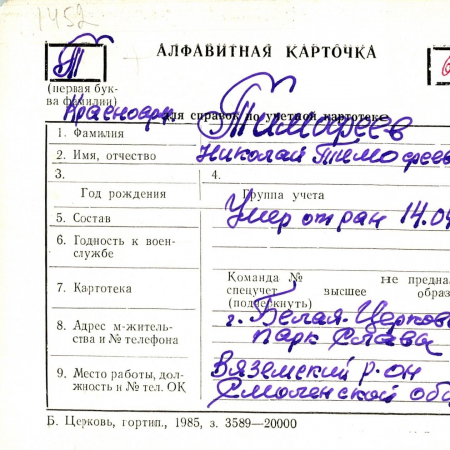 1452
Т АЛФАВИТНАЯ КАРТОЧКА
(первая бук-
ва фамилии)
для справок по учетной картотеке
1. Фамилия Тимофеев
2. Имя, отчество Николай Тимофеев
3. 4.
Год рождения Группа учета
5. Состав Умер от ран 14.04
6. Годность к воен-
службе
Команда № не предна
7. Картотека спецучет высшее образ
(подчеркнуть)
8. Адрес м-житель- г. Белая-Церковь
ства и № телефона парк Слава
9. Место работы, дол- Вяземский р-он
жность и № тел. ОК Смоленской обл
Б. Церковь, гортип., 1985, з. 3589—20000